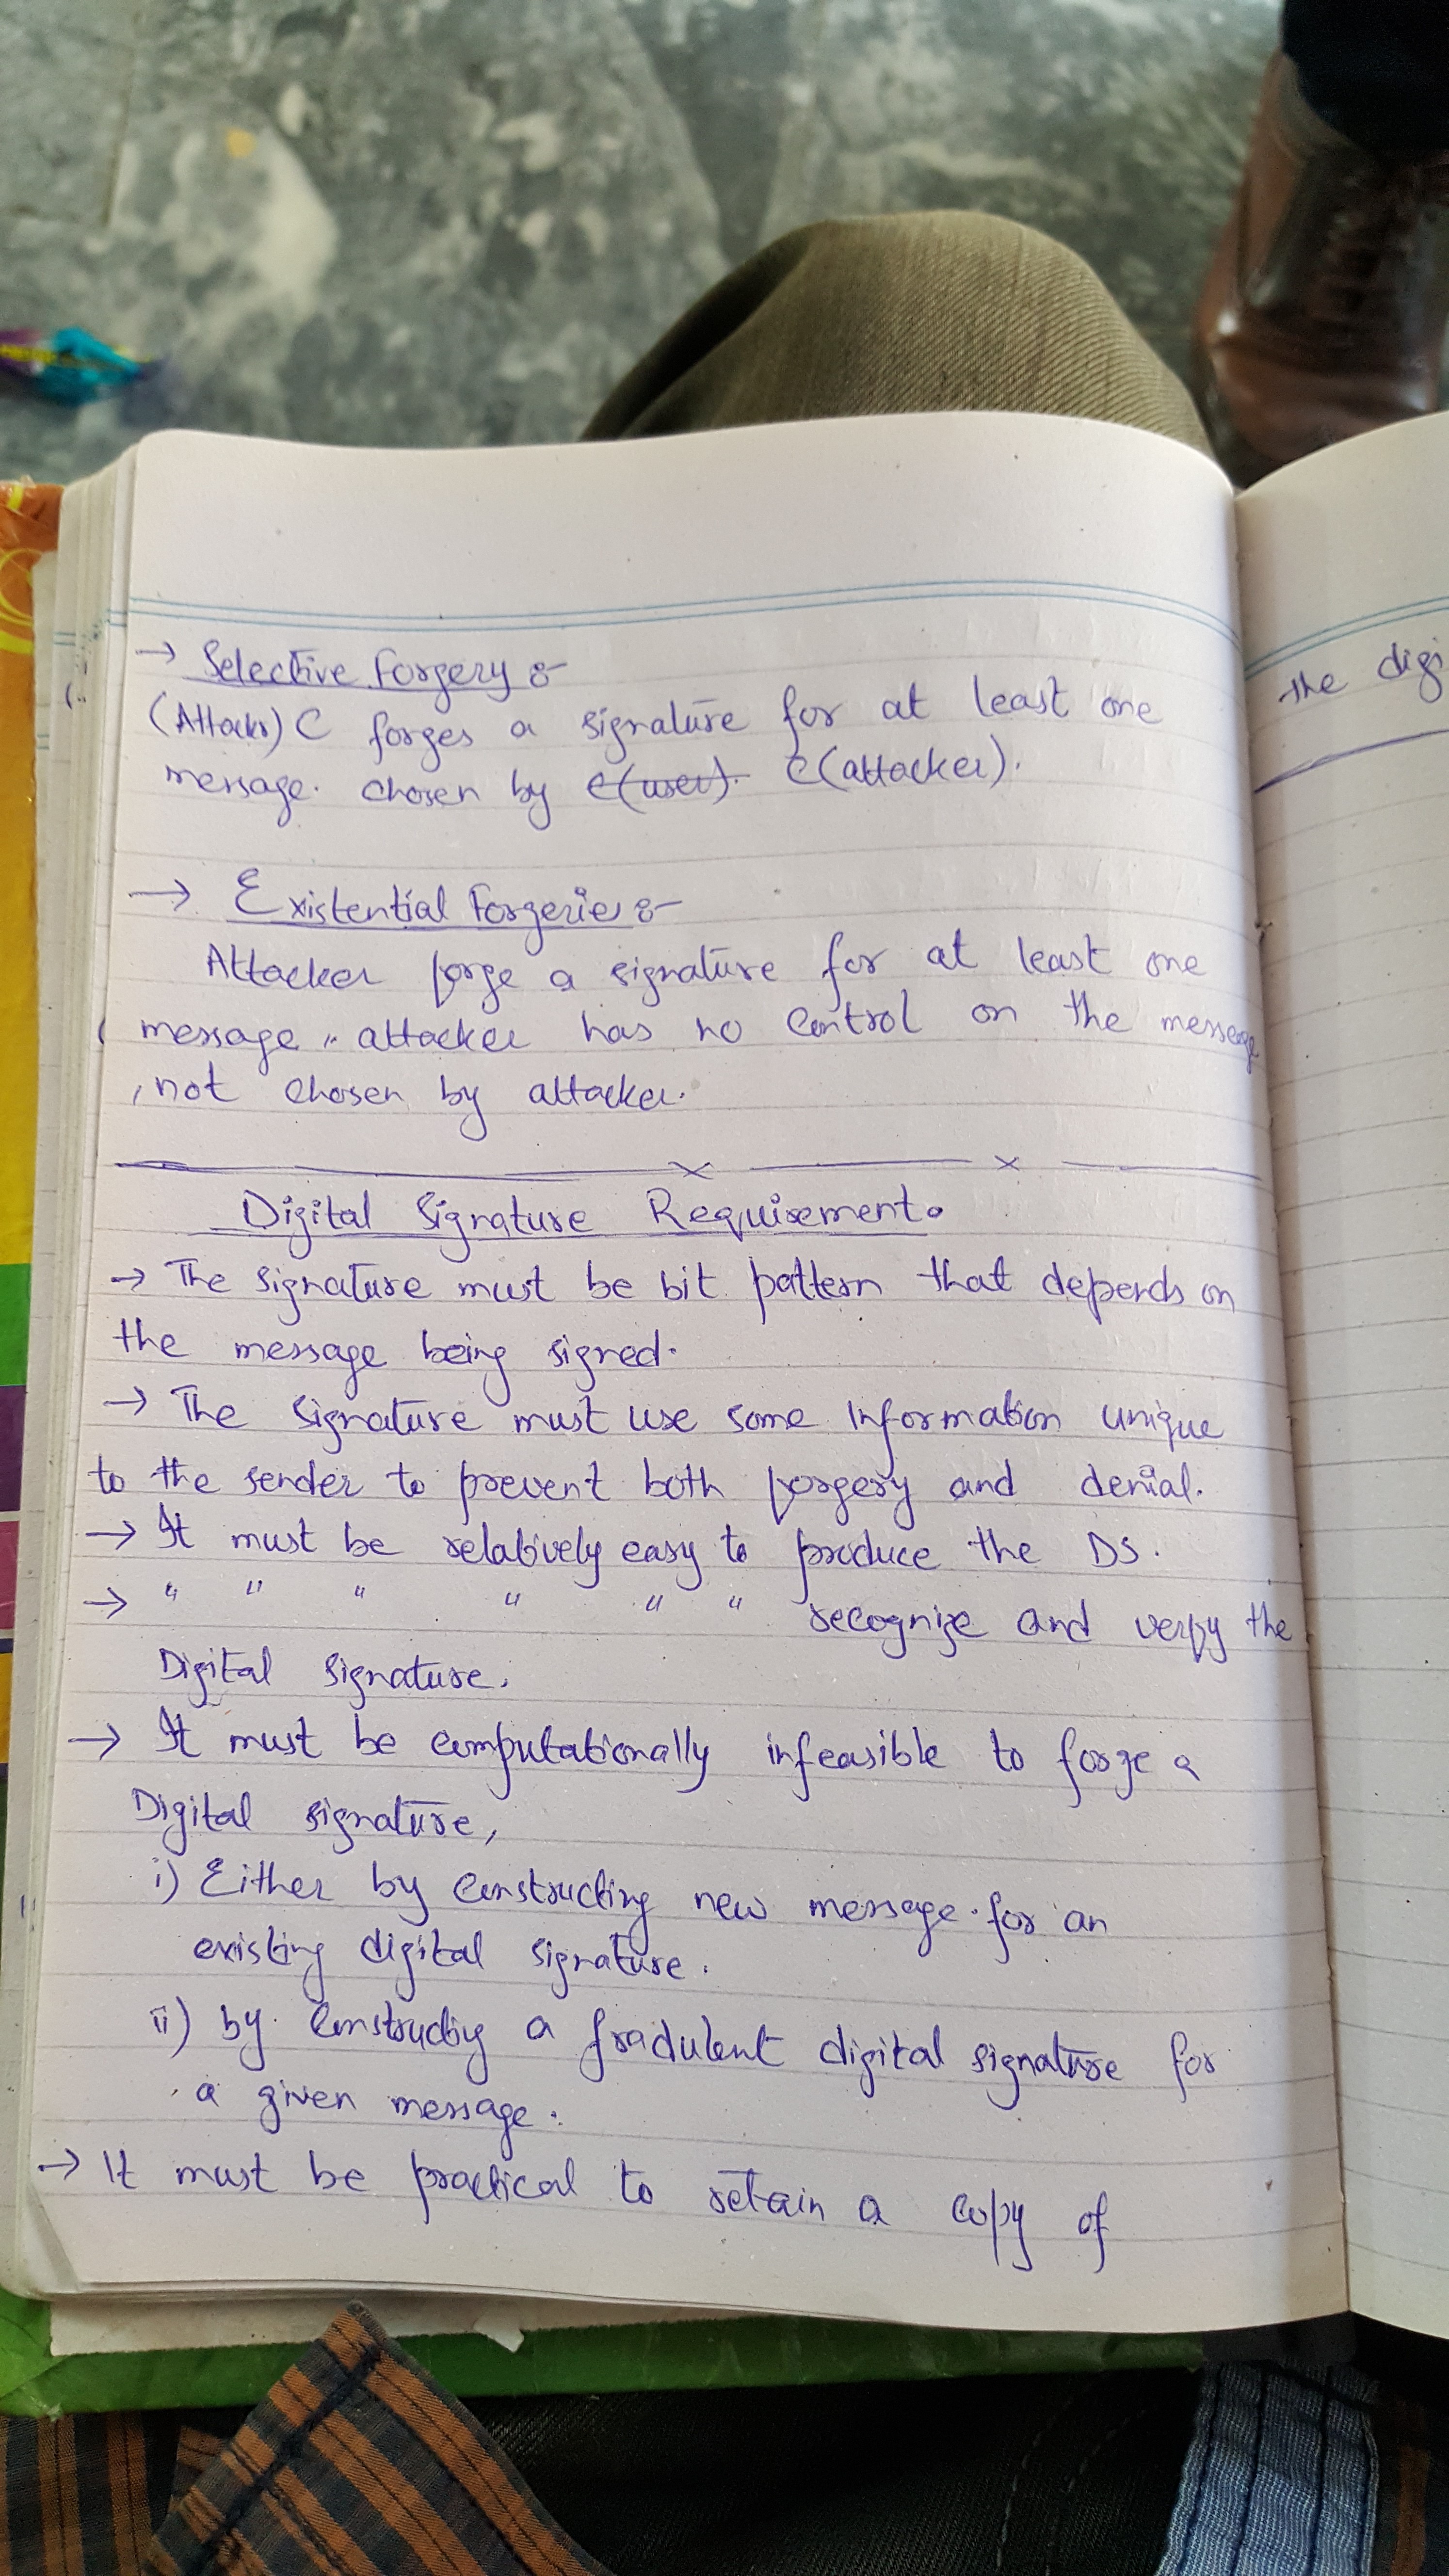 → Selective Forgery :-
(Attackr) C forges a signature for at least one
message. chosen by c(user). C(attacker).
→ Existential Forgeries :-
Attacker forge a signature for at least one
message, attacker has no control on the message
, not chosen by attacker.
Digital Signature Requirement.
→ The signature must be bit pattern that depends on
the message being signed.
→ The signature must use some information unique
to the sender to prevent both forgery and denial.
→ It must be relatively easy to produce the DS.
→ " " " " " " recognize and verify the
Digital signature.
→ It must be computationally infeasible to forge a
Digital signature,
i) Either by constructing new message for an
existing digital signature.
ii) by constructing a fradulent digital signature for
a given message.
→ It must be practical to retain a copy of
the digi